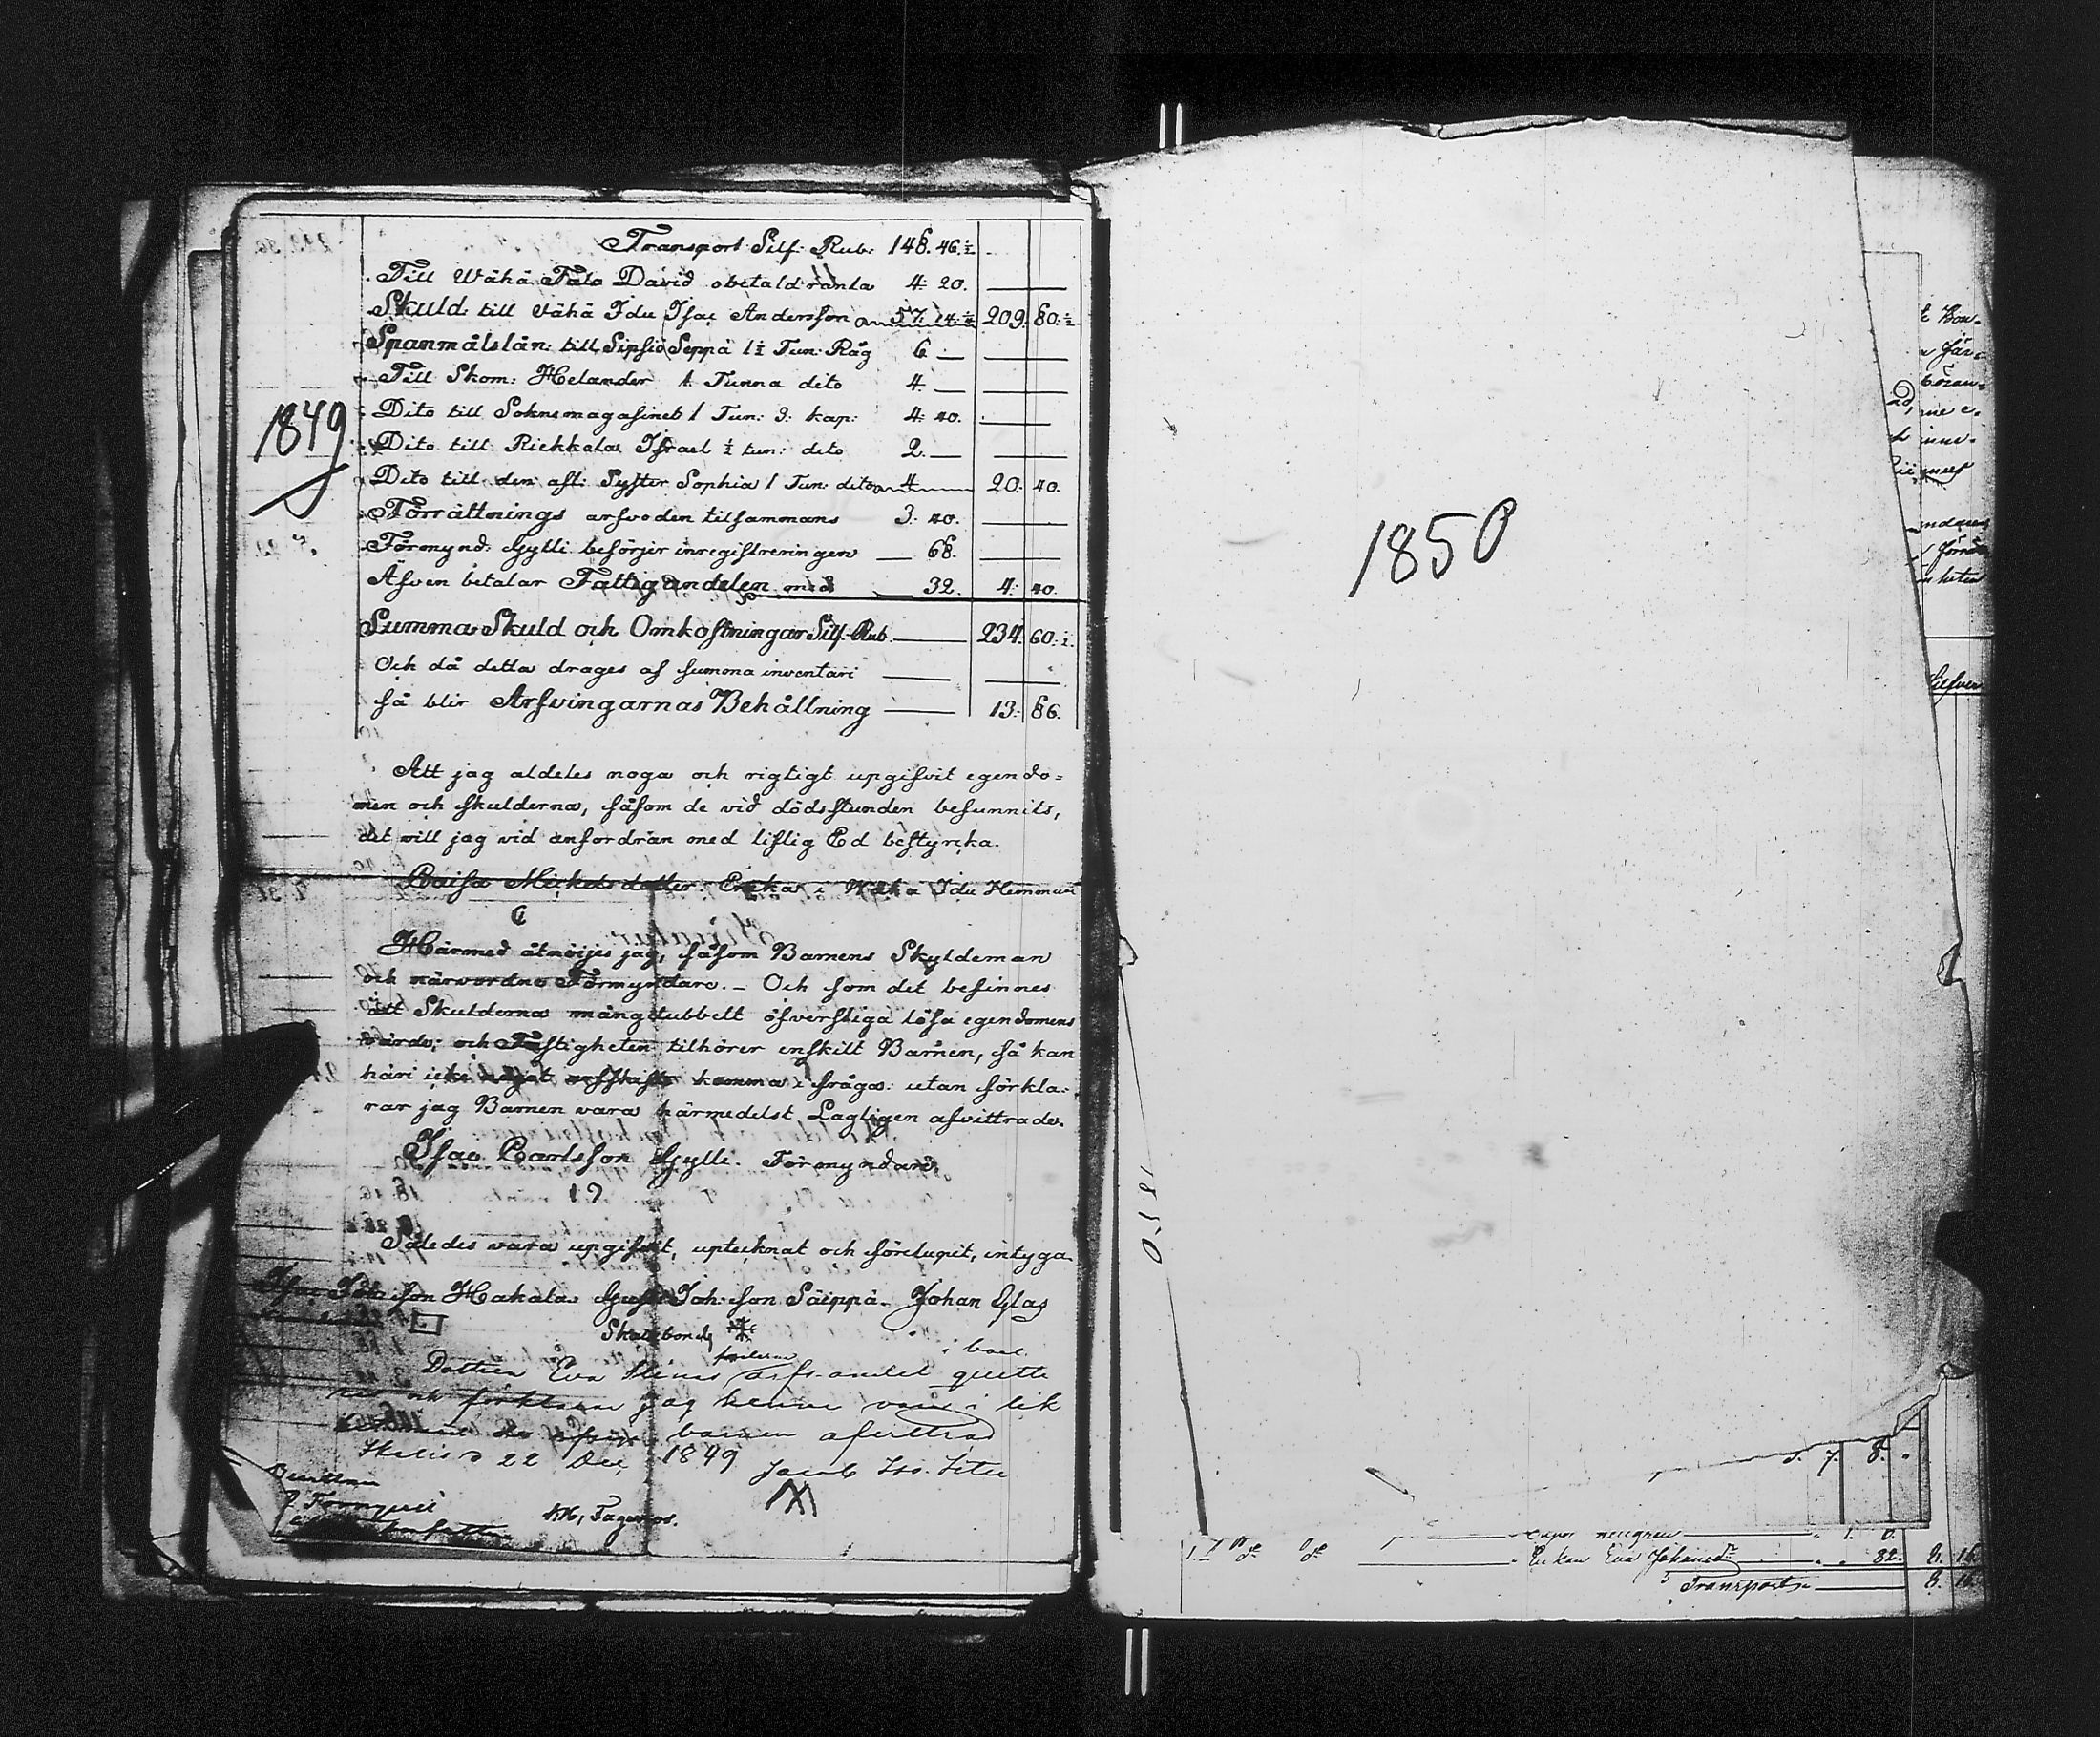 Transport Silf: Rub: 148. 46.½
Till Wähä Talo David obetald ränta 4: 20.
Skuld: till Vähä Idu Isac Andersson 57. 14.¼ 209. 80.½
Spanmålslån: till Sipsiö Seppä 1½ Tun: Råg 6 —
Till Skom: Helander 1 Tunna dito 4 —
1849
Dito till Soknemagasinet 1 Tun: 3: kap: 4: 40.
Dito till Riekkola Israel ½ tun: dito 2. —
Dito till den afl: Syster Sophia 1 Tun: dito 4 20: 40.
Förrättnings arfvoden tilsammans 3. 40.
Förmynd: Gylli besörjer inregistreringen — 68.
Äfven betalar Fattigandelen med — 32. 4: 40.
Summa Skuld och Omkostningar Silf. Rub. 234. 60.½
Och då detta drages af summa inventari
så blir Arfvingarnas Behållning 13: 86.
Att jag aldeles noga och rigtigt upgifvit egendo=
men och skulderna, såsom de vid dödsstunden befunnits,
det will jag vid anfordran med liflig Ed bestyrcka.
Caisa Mickelsdotter Enka i Wähä Idu Hemman
Härmed åtnöijes jag, såsom Barnens Skyldeman
och närvordne Förmyndare. – Och som det befinnes
att Skulderna mångdubbelt öfverstiga lösa egendomens
värde; och Fastigheten tilhörer enskilt Barnen, så kan
häri icke något arfskifte komma i fråga: utan förkla-
rar jag Barnen vara härmedelst Lagligen afvittrade.
Isac Carlsson Gylli. Förmyndare
Således vara upgifvit, uptecknat och förelupit, intyga
Isac Joh:son Hakala Gust: Joh:son Säippä. Johan Glas
Skattebonde
i boet
Dottren Eva Stinas arfs andel quitte
rar och förklarar jag henne vara i lik
barnen afvittrad
22 Dec 1849 Jacob
1850
1850
5. 7. 8.
Enkan Eva Johansdr 82. 8. 16
Transport 8. 16